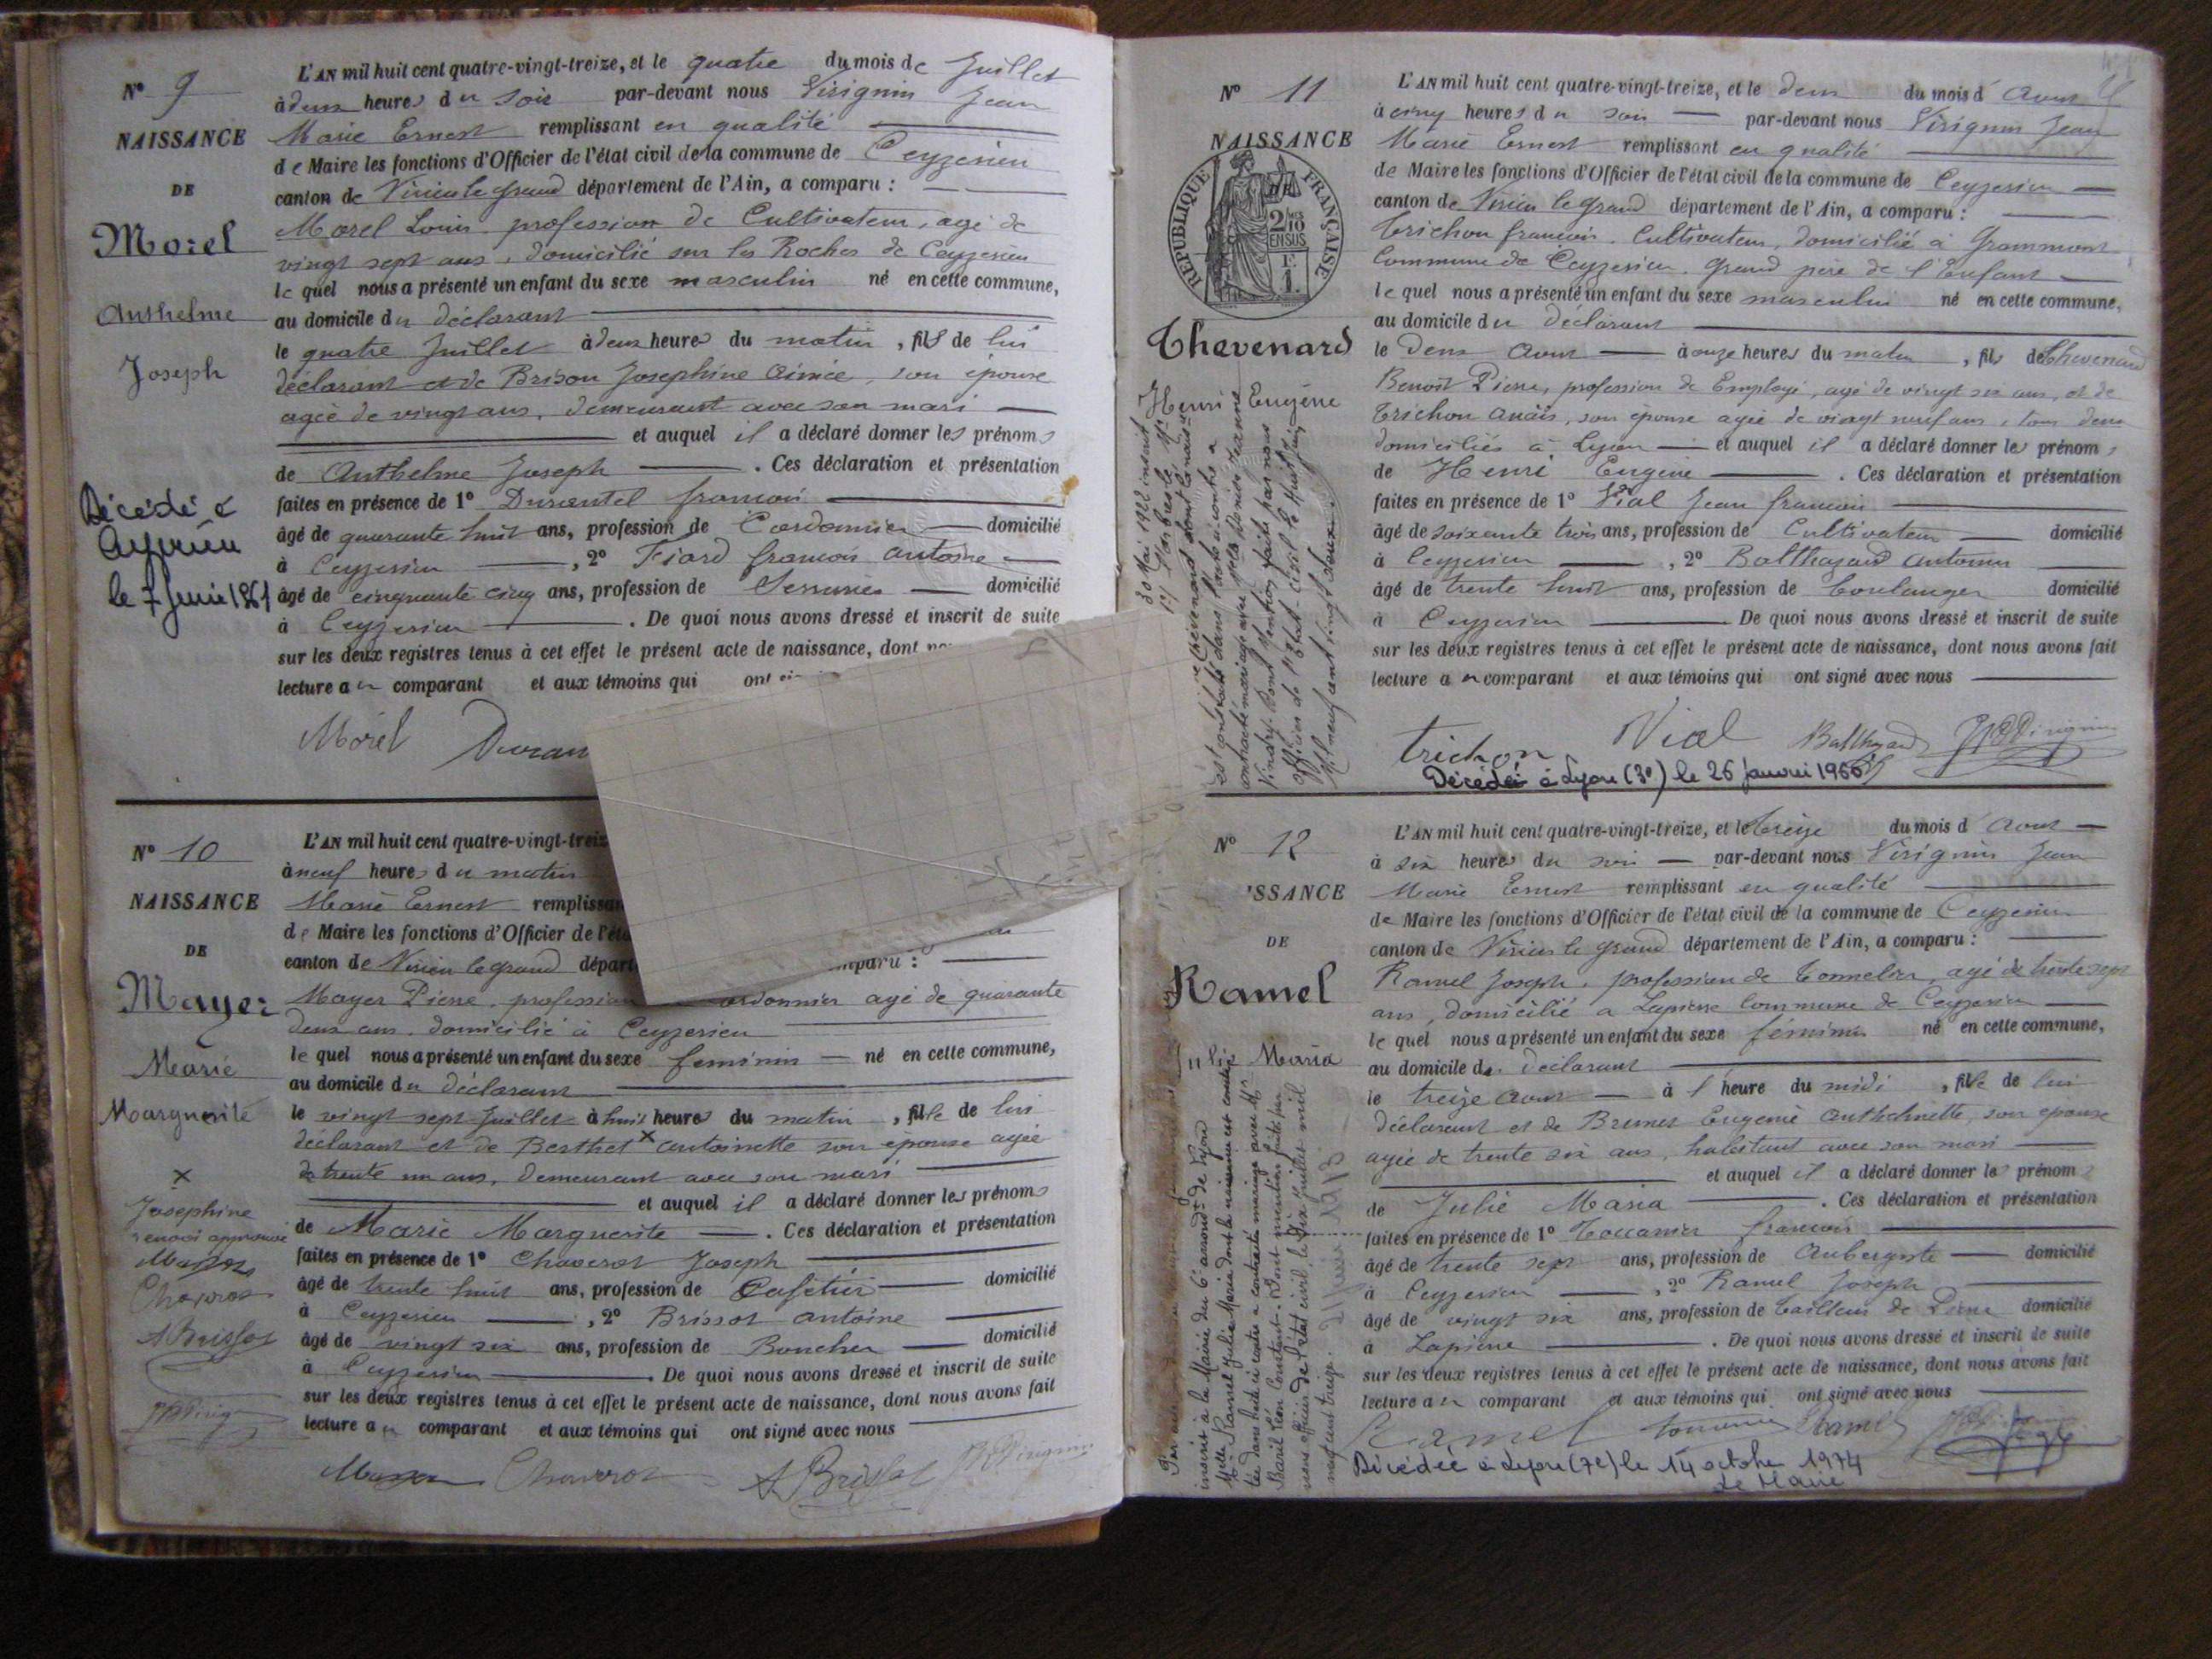 Nº 9
NAISSANCE
DE
Morel
Anthelme
Joseph
Décédé à
Ceyzérieu
le 7
L'AN mil huit cent quatre-vingt-treize, et le quatre du mois de Juillet
à deux heures du soir par-devant nous Virignin Jean
Marie Ernest remplissant en qualité
de Maire les fonctions d'Officier de l'état civil de la commune de Ceyzerieu
canton de Virieu le grand département de l'Ain, a comparu :
Morel Louis profession de Cultivateur, agé de
vingt sept ans, domicilié sur les Roches de Ceyzerieu
le quel nous a présenté un enfant du sexe masculin né en cette commune,
au domicile du déclarant
le quatre Juillet à deux heures du matin, fils de lui
déclarant et de Brison Josephine Aimée, son épouse
agée de vingt ans, demeurant avec son mari
et auquel il a déclaré donner les prénoms
de Anthelme Joseph . Ces déclaration et présentation
faites en présence de 1º Durantel francois
âgé de quarante huit ans, profession de Cordonnier domicilié
à Ceyzerieu , 2º Fiard francois antoine
âgé de cinquante cinq ans, profession de Serrurier domicilié
à Ceyzerieu . De quoi nous avons dressé et inscrit de suite
sur les deux registres tenus à cet effet le présent acte de naissance, dont
lecture au comparant et aux témoins qui ont
Morel Duran
Nº 10
NAISSANCE
DE
Mayer
Marie
Marguerite
x
Josephine
renvoi approuvé
Mayer
Chaverot
A Brissot
L'AN mil huit cent quatre-vingt-treiz
à neuf heures du matin
Marie Ernest remplissan
de Maire les fonctions d'Officier de l'éta
canton de Virieu le grand départ mparu :
Mayer Pierre, profession ordonnier agé de quarante
deux ans, domicilié à Ceyzerieu
le quel nous a présenté un enfant du sexe feminin né en cette commune,
au domicile du déclarant
le vingt sept Juillet à huit heures du matin, fille de lui
déclarant et de Berthet x antoinette son épouse agée
de trente un ans, demeurant avec son mari
et auquel il a déclaré donner les prénoms
de Marie Marguerite . Ces déclaration et présentation
faites en présence de 1º Chaverot Joseph
âgé de trente huit ans, profession de Cafetier domicilié
à Ceyzerieu , 2º Brissot antoine
âgé de vingt six ans, profession de Boucher domicilié
à Ceyzerieu . De quoi nous avons dressé et inscrit de suite
sur les deux registres tenus à cet effet le présent acte de naissance, dont nous avons fait
lecture au comparant et aux témoins qui ont signé avec nous
Mayer Chaverot A Brissot
Nº 11
NAISSANCE
DE
REPUBLIQUE FRANÇAISE
2/10 EN SUS
1
Thevenard
Henri Eugène
L'AN mil huit cent quatre-vingt-treize, et le deux du mois d'Aout
à cinq heures du soir par-devant nous Virignin Jean
Marie Ernest remplissant en qualité
de Maire les fonctions d'Officier de l'état civil de la commune de Ceyzerieu
canton de Virieu le grand département de l'Ain, a comparu :
Trichon francois, Cultivateur, domicilié à Grammont
Commune de Ceyzerieu, Grand père de l'Enfant
le quel nous a présenté un enfant du sexe masculin né en cette commune,
au domicile du déclarant
le deux Aout à onze heures du matin, fils de Thevenard
Benoît Pierre, profession de Employé, agé de vingt six ans, et de
Trichon Anaïs, son épouse agée de vingt neuf ans, tous deux
domiciliés à Lyon et auquel il a déclaré donner les prénoms
de Henri Eugène . Ces déclaration et présentation
faites en présence de 1º Vial Jean francois
âgé de soixante trois ans, profession de Cultivateur domicilié
à Ceyzerieu , 2º Balthazard Antonin
âgé de trente huit ans, profession de boulanger domicilié
à Ceyzerieu De quoi nous avons dressé et inscrit de suite
sur les deux registres tenus à cet effet le présent acte de naissance, dont nous avons fait
lecture au comparant et aux témoins qui ont signé avec nous
trichon Vial Balthazard
Décédé à Lyon (3e) le 26 janvier 1966
Nº 12
'SSANCE
DE
Ramel
Maria
L'AN mil huit cent quatre-vingt-treize, et le treize du mois d'Aout
à six heures du soir par-devant nous Virignin Jean
Marie Ernest remplissant en qualité
de Maire les fonctions d'Officier de l'état civil de la commune de Ceyzerieu
canton de Virieu le grand département de l'Ain, a comparu :
Ramel Joseph, profession de Tonnelier, agé de trente sept
ans, domicilié a Lapierre Commune de Ceyzerieu
le quel nous a présenté un enfant du sexe féminin né en cette commune,
au domicile du déclarant
le treize Aout à l'heure du midi, fille de lui
déclarant et de Brunet Eugenie Anthelmette, son épouse
agée de trente six ans, habitant avec son mari
et auquel il a déclaré donner les prénoms
de Julie Maria . Ces déclaration et présentation
faites en présence de 1º francois
âgé de trente sept ans, profession de Aubergiste domicilié
à Ceyzerieu , 2º Ramel Joseph
âgé de vingt six ans, profession de tailleur de Pierre domicilié
à Lapierre . De quoi nous avons dressé et inscrit de suite
sur les deux registres tenus à cet effet le présent acte de naissance, dont nous avons fait
lecture au comparant et aux témoins qui ont signé avec nous
Ramel Ramel
Décédée à Lyon (7e) le 14 octobre 1974
Le Maire